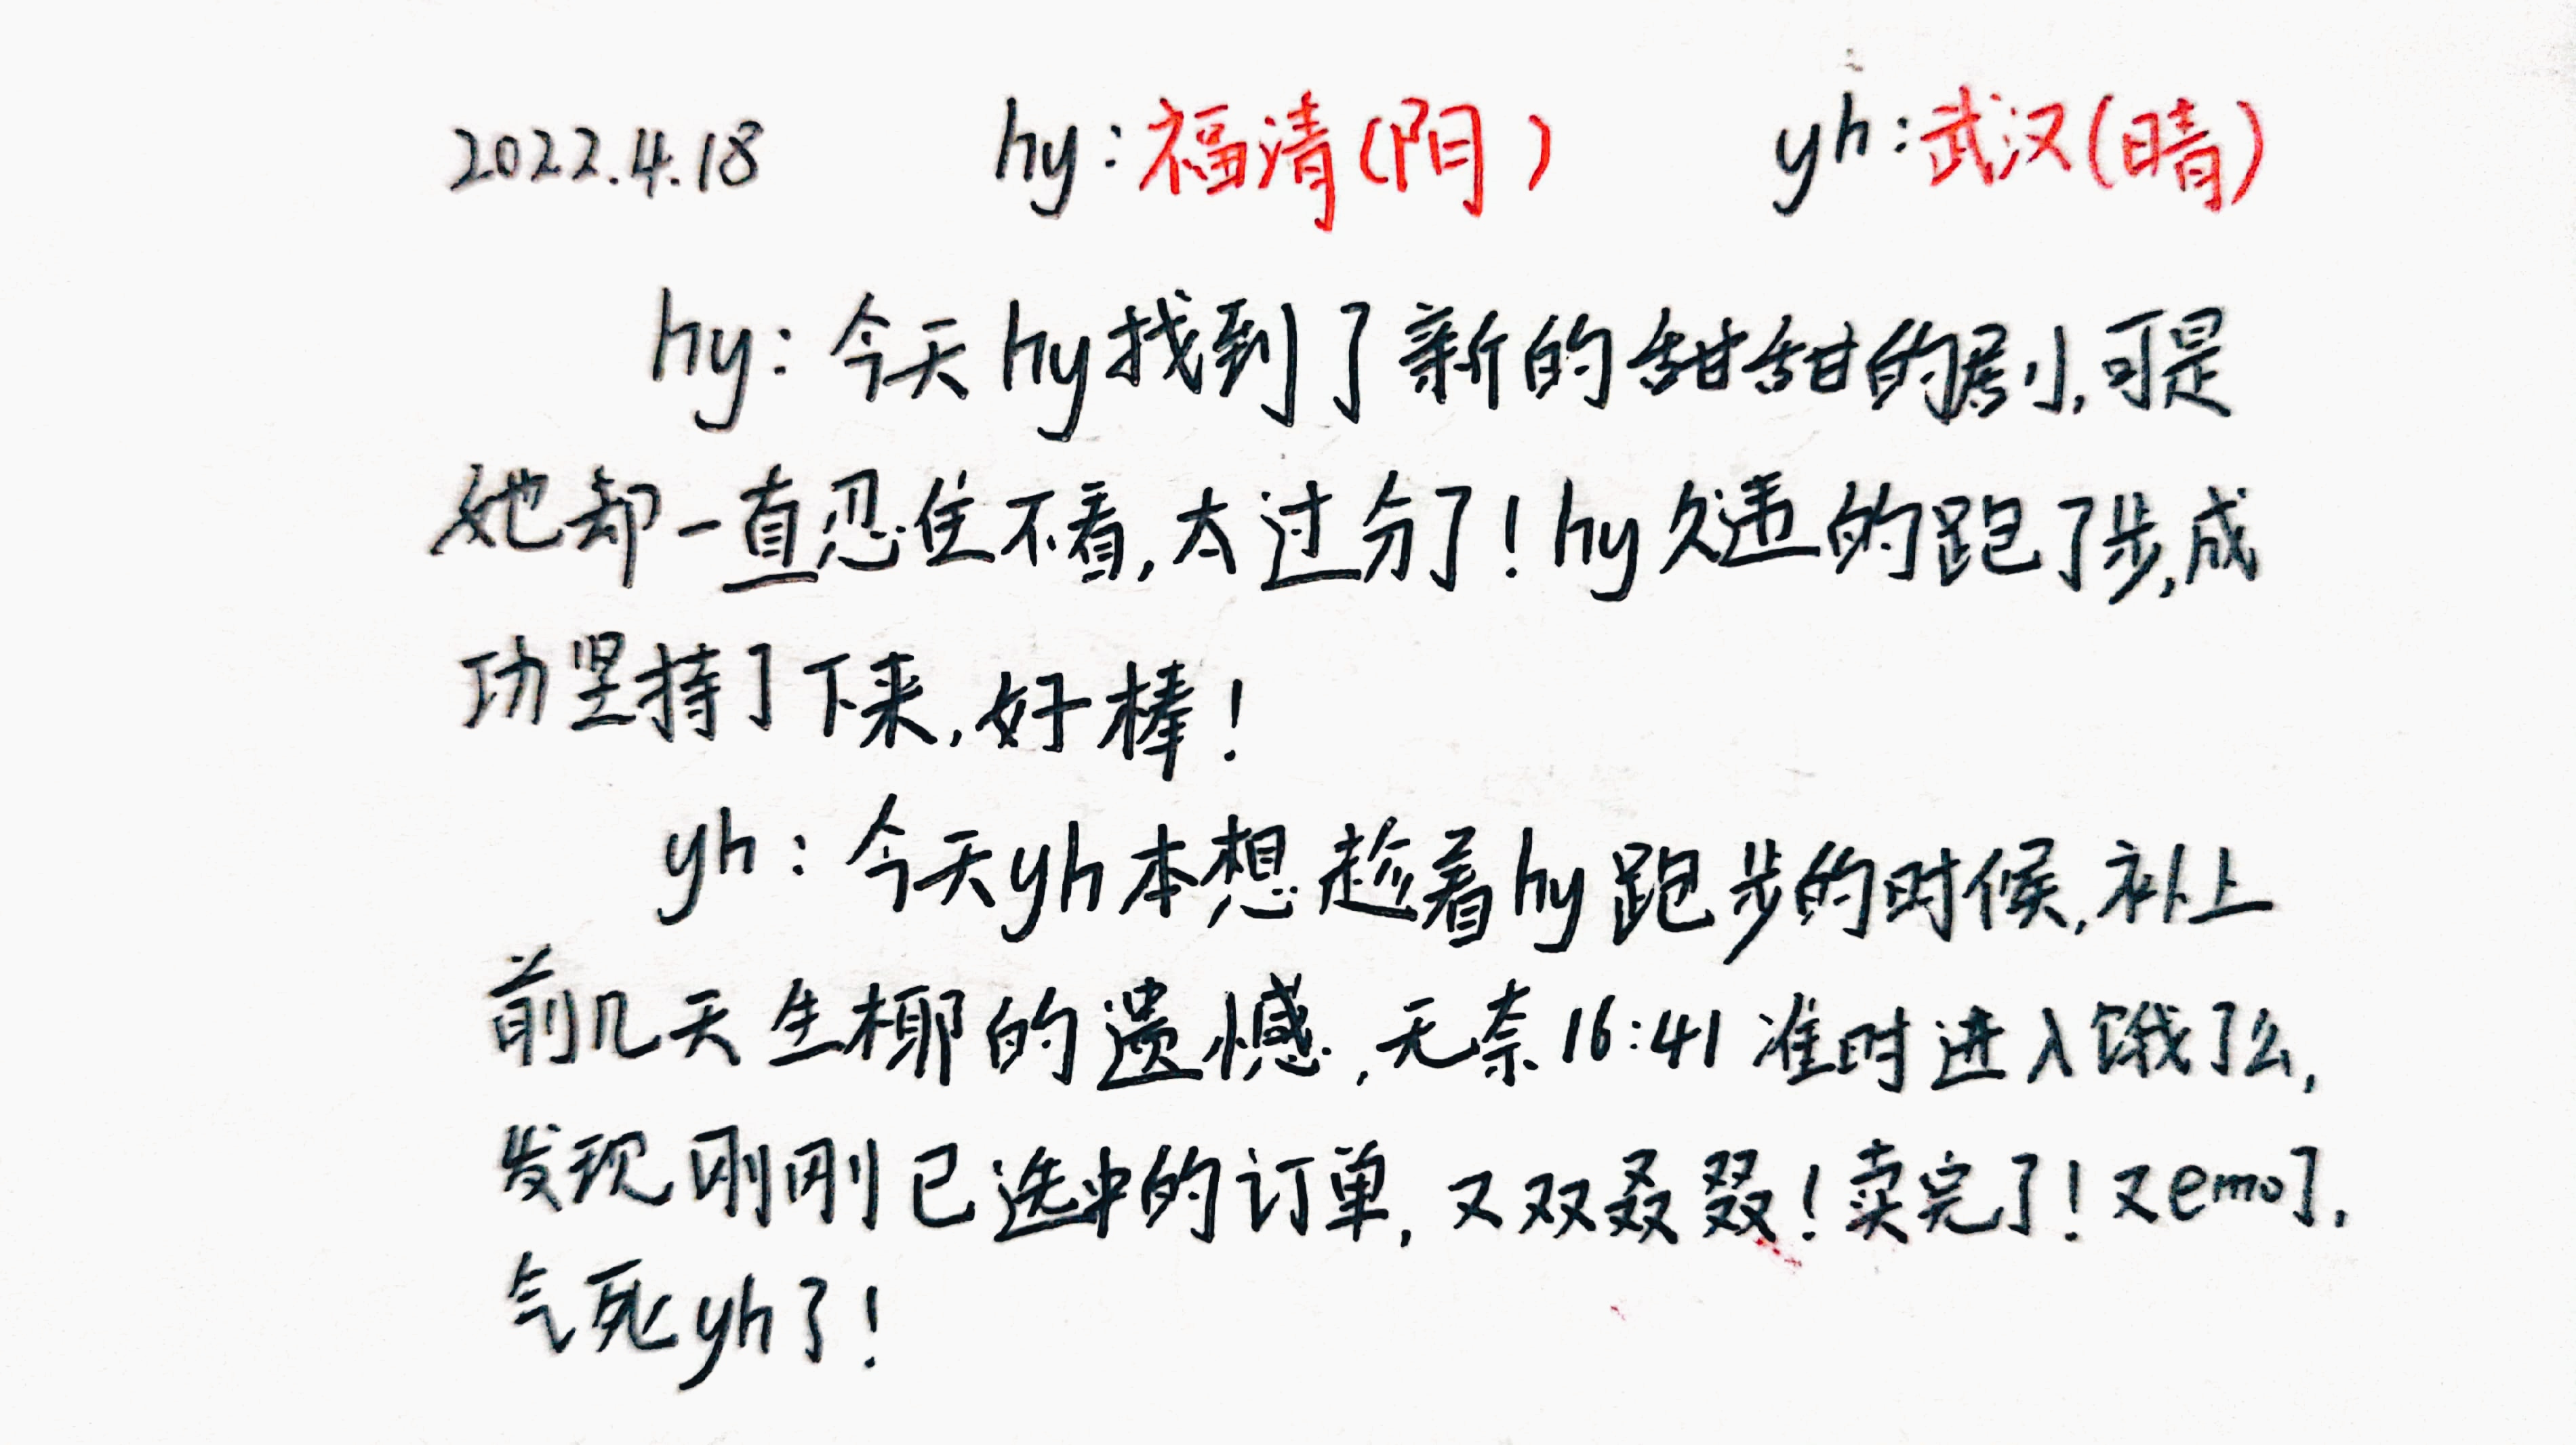 2022.4.18 hy:福清(阴) yh:武汉(晴)
hy:今天hy找到了新的甜甜的剧,可是
她却一直忍住不看,太过分了!hy久违的跑了步,成
功坚持了下来,好棒!
yh:今天yh本想趁着hy跑步的时候,补上
前几天生椰的遗憾,无奈16:41准时进入饿了么,
发现刚刚已选中的订单,又双叒叕!卖完了!又emo了,
气死yh了!